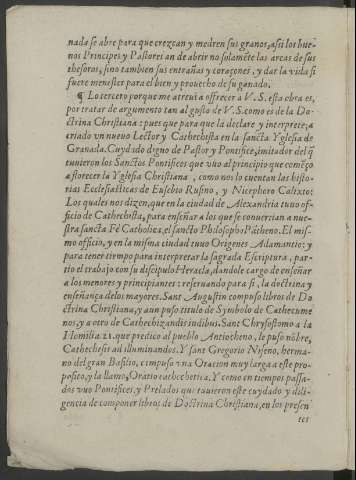 nada se abre para que crezcan y medren sus granos, assi los bue-
nos Principes y Pastores an de abrir no solamẽte las arcas de sus
thesoros, sino tambien sus entrañas y coraçones, y dar la vida si
fuere menester para el bien y prouecho de su ganado.
¶ Lo tercero porque me atreui a offrescer à V. S. esta obra es,
por tratar de argumento tan al gusto de V. S. como es de la Do-
ctrina Christiana: pues que para que la declare y interprete, a
criado vn nueuo Lector y Cathechista en la sancta Yglesia de
Granada. Cuydado digno de Pastor y Pontifice, imitador del q̃
tuuieron los Sanctos Pontifices que vuo al principio que comẽço
a florecer la Yglesia Christiana, como nos lo cuentan las histo-
rias Ecclesiasticas de Eusebio Rufino, y Nicephoro Calixto:
Los quales nos dizen, que en la ciudad de Alexandria tuuo of-
ficio de Cathechista, para enseñar a los que se conuertian a nue-
stra sancta Fè Catholica, el sancto Philosopho Pãtheno. El mis-
mo officio, y en la misma ciudad tuuo Origenes Adamantio: y
para tener tiempo para interpretar la sagrada Escriptura, par-
tio el trabajo con su discipulo Heracla, dandole cargo de enseñar
a los menores y principiantes: reseruando para si, la doctrina y
enseñança de los mayores. Sant Augustin compuso libros de Do
ctrina Christiana, y aun puso titulo de Symbolo de Cathecume
nos, y a otro de Cathechizandis rudibus. Sant Chrysostomo a la
Homilia 21. que predico al pueblo Antiocheno, le puso nõbre,
Cathechesis ad illuminandos. Y Sant Gregorio Niseno, herma-
no del gran Basilio, cõpuso vna Oracion muy larga a este pro-
posito, y la llamo, Oratio cathechetica. Y como en tiempos passa-
dos vuo Pontifices, y Prelados que tuuieron este cuydado y dili-
gencia de componer libros de Doctrina Christiana, en los presen
tes